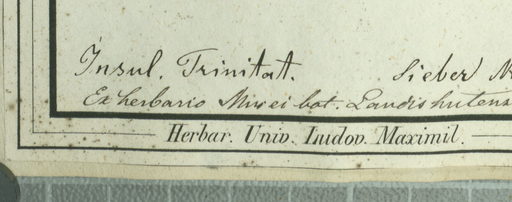 Insul. Trinitat. Sieber
Ex herbario Musei bot. Landishutens
Herbar. Univ. Ludov. Maximil.